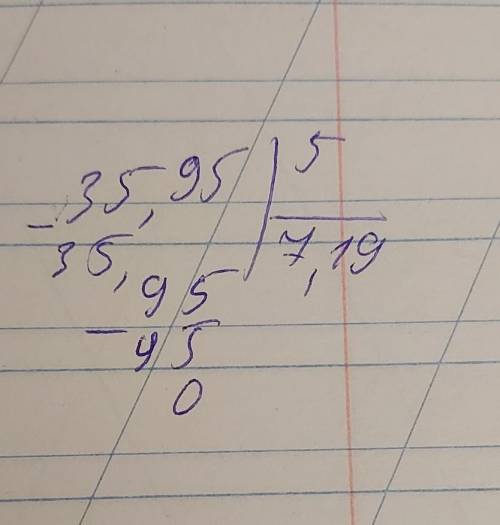 -35,95 | 5
35, 7,19
95
-95
0